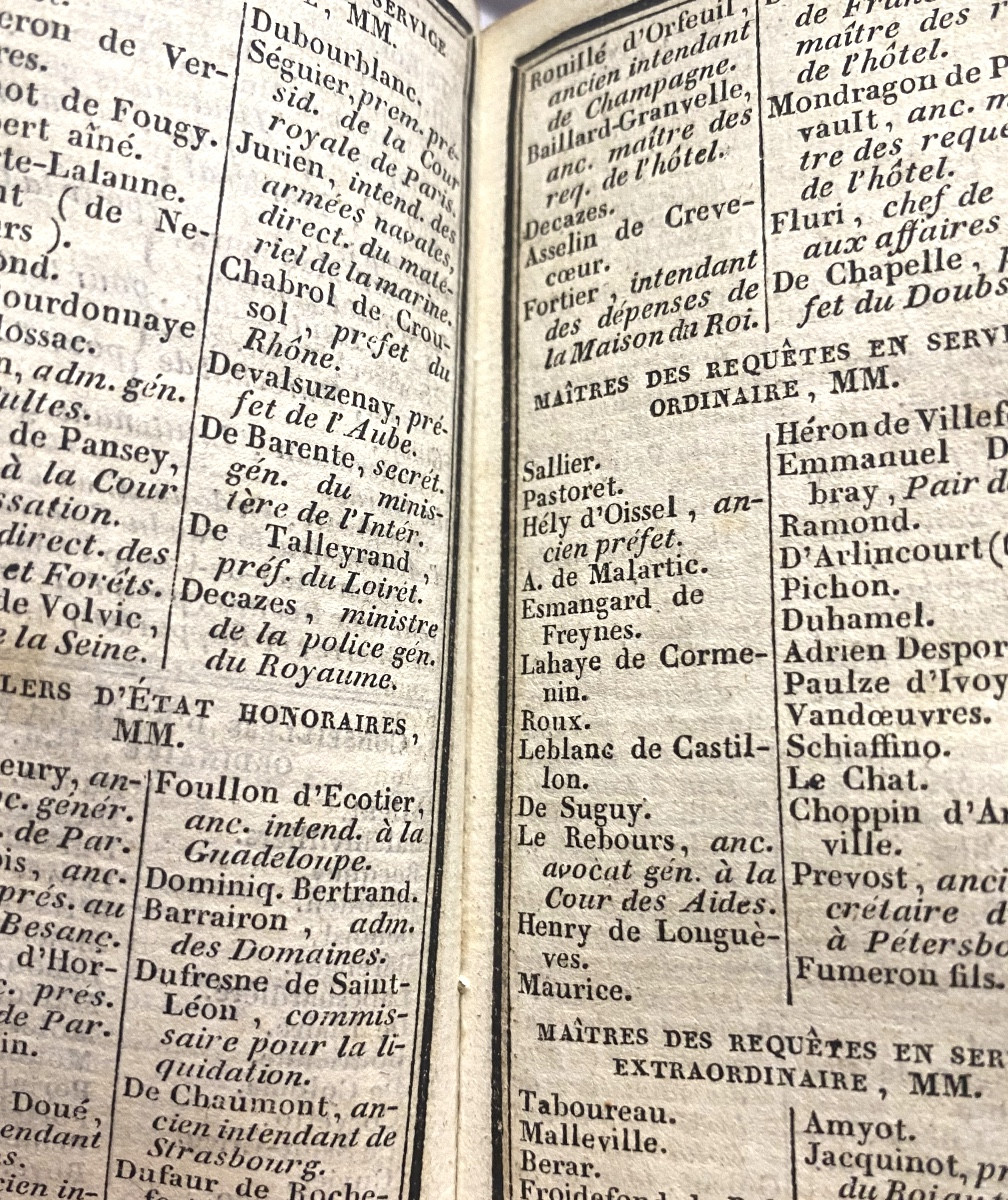 SERVICE
, MM.
eron de Ver-
res.
ot de Fougy.
bert aîné.
te-Lalanne.
nt ( de Ne-
rs ).
ond.
ourdonnaye
lossac.
n, adm. gén.
ultes.
de Pansey,
à la Cour
ssation.
direct. des
et Foréts.
de Volvic,
e la Seine.
Dubourblanc.
Séguier, prem. pré-
sid. de la Cour
royale de Paris.
Jurien, intend. des
armées navales,
direct. du maté-
riel de la marine.
Chabrol de Crou-
sol, préfet du
Rhône.
Devalsuzenay, pré-
fet de l'Aube.
De Barente, secrét.
gén. du minis-
tère de l'Intér.
De Talleyrand,
préf. du Loiret.
Decazes, ministre
de la police gén.
du Royaume.
LERS D'ÉTAT HONORAIRES,
MM.
eury, an-
c. génér.
. de Par.
is, anc.
prés. au
Besanç.
d'Hor-
c. prés.
de Par.
in.
Doué,
endant
s.
cien in-
Foullon d'Ecotier,
anc. intend. à la
Guadeloupe.
Dominiq. Bertrand.
Barrairon, adm.
des Domaines.
Dufresne de Saint-
Léon, commis-
saire pour la li-
quidation.
De Chaumont, an-
cien intendant de
Strasbourg.
Dufaur de Roche-
Rouillé d'Orfeuil,
ancien intendant
de Champagne.
Baillard-Granvelle,
anc. maître des
req. de l'hôtel.
Decazes.
Asselin de Creve-
cœur.
Fortier, intendant
des dépenses de
la Maison du Roi.
de Fran
maître des r
de l'hôtel.
Mondragon de P
vault, anc. m
tre des requ
de l'hôtel.
Fluri, chef de
aux affaires
De Chapelle, p
fet du Doubs
MAÎTRES DES REQUÊTES EN SERVI
ORDINAIRE, MM.
Sallier.
Pastoret.
Hély d'Oissel, an-
cien préfet.
A. de Malartic.
Esmangard de
Freynes.
Lahaye de Corme-
nin.
Roux.
Leblanc de Castil-
lon.
De Suguy.
Le Rebours, anc.
avocat gén. à la
Cour des Aides.
Henry de Louguè-
ves.
Maurice.
Héron de Villef
Emmanuel D
bray, Pair d
Ramond.
D'Arlincourt (
Pichon.
Duhamel.
Adrien Despor
Paulze d'Ivoy
Vandœuvres.
Schiaffino.
Le Chat.
Choppin d'Ar
ville.
Prevost, anci
crétaire d
à Pétersbo
Fumeron fils.
MAÎTRES DES REQUÊTES EN SER
EXTRAORDINAIRE, MM.
Taboureau.
Malleville.
Berar.
Amyot.
Jacquinot, pr
du Roi